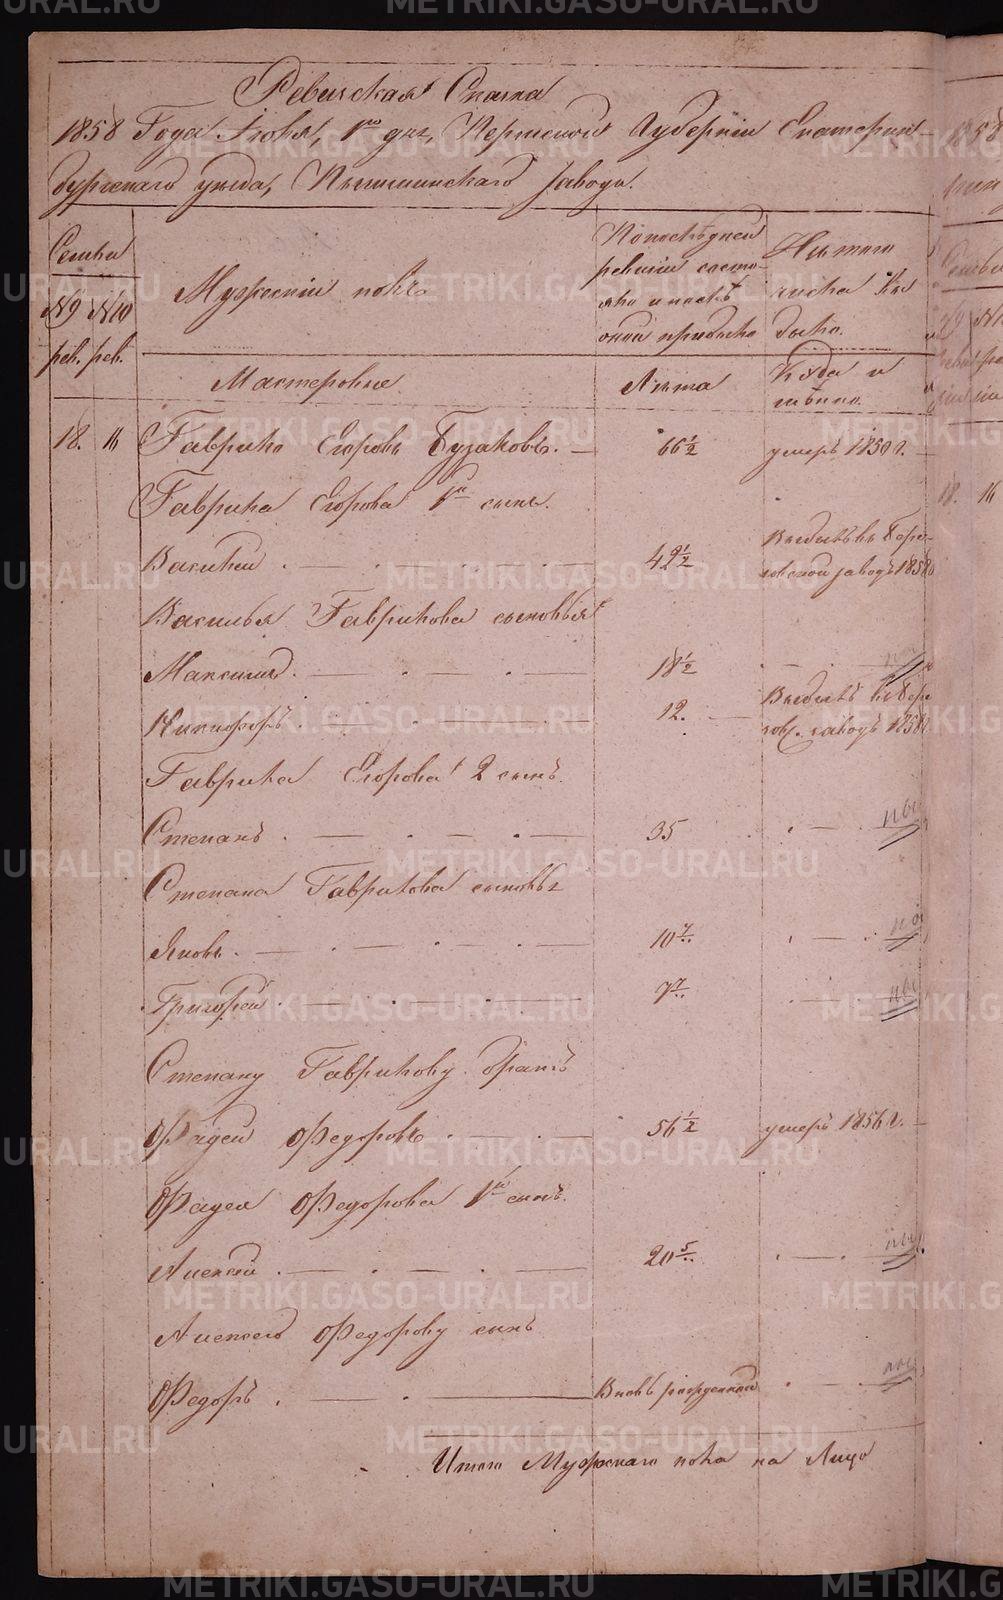 Ревизская Сказка
1858 Года Iюня, 1го дня, Пермской Губернiи Екатерин-
бургскаго уезда, Пышминскаго завода.
Семьи
№9 №10
рев. рев.
Мужескiй полъ
По последней
ревизiи состо-
яло и после
оной прибыло
Изъ того
числа вы
было.
Мастеровые
Лета
Куда и
18. 16 Гаврило Егоровъ Бузаковъ. 66 1/2 умеръ 1850 г.
Гаврила Егорова 1й сынъ.
Василiй 49 1/2 Выбылъ въ Бере-
зовской заводъ 1858
Василья Гаврилова сыновья
Максимъ 18 1/2
Никифоръ 12. Выбылъ въ Бере
зов. заводъ 1858
Гаврила Егорова 2 сынъ.
Степанъ 35
Степана Гаврилова сыновья
Яковъ 10 7/..
Григорей 7 7/..
Степану Гаврилову братъ
Фадей Федоровъ 56 1/2 умеръ 1856 г.
Фадея Федорова 1й сынъ.
Алексей 20 5/..
Алексею Федорову сынъ
Федоръ. вновь рожденный
Итого Мужескаго пола на Лицо
METRIKI.GASO-URAL.RU